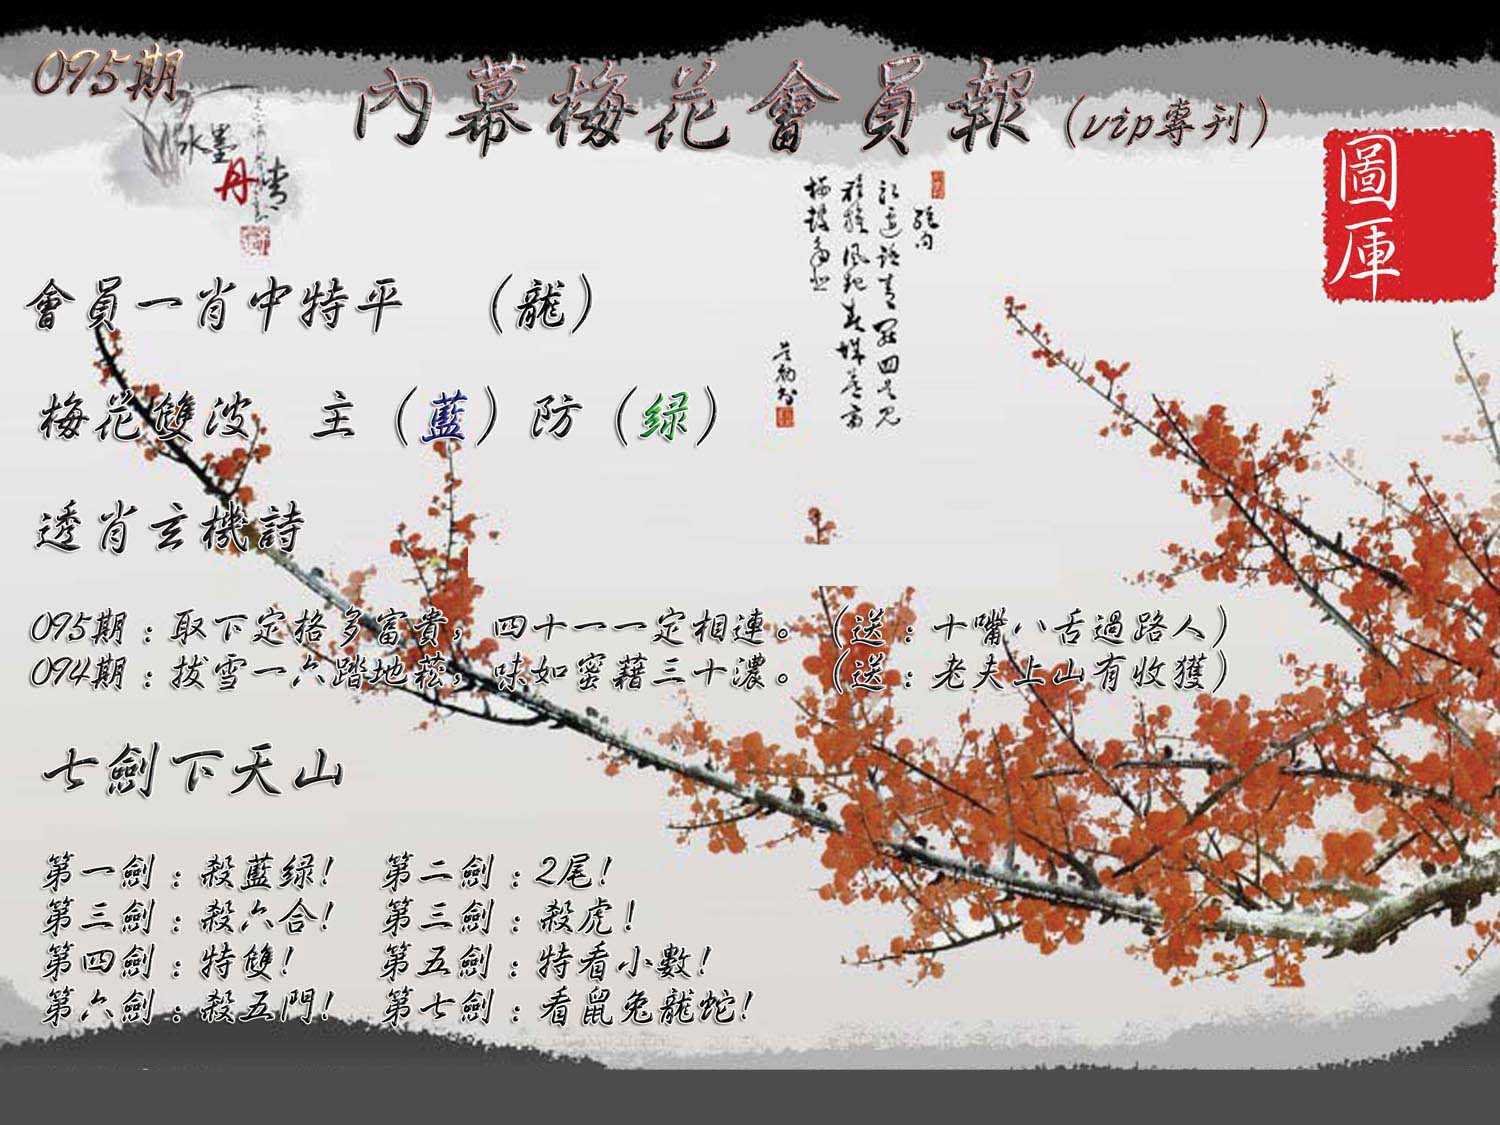 095期
內幕梅花會員報(vip專刊)
水墨
丹青
圖庫
會員一肖中特平 （龍）
梅花雙波 主（藍）防（绿）
透肖玄機詩
095期：取下定格多富貴，四十一一定相連。（送：十嘴八舌過路人）
094期：拔雪一六踏地菘，味如蜜藉三十濃。（送：老夫上山有收獲）
七劍下天山
第一劍：殺藍绿！ 第二劍：2尾！
第三劍：殺六合！ 第三劍：殺虎！
第四劍：特雙！ 第五劍：特看小數！
第六劍：殺五門！ 第七劍：看鼠兔龍蛇！